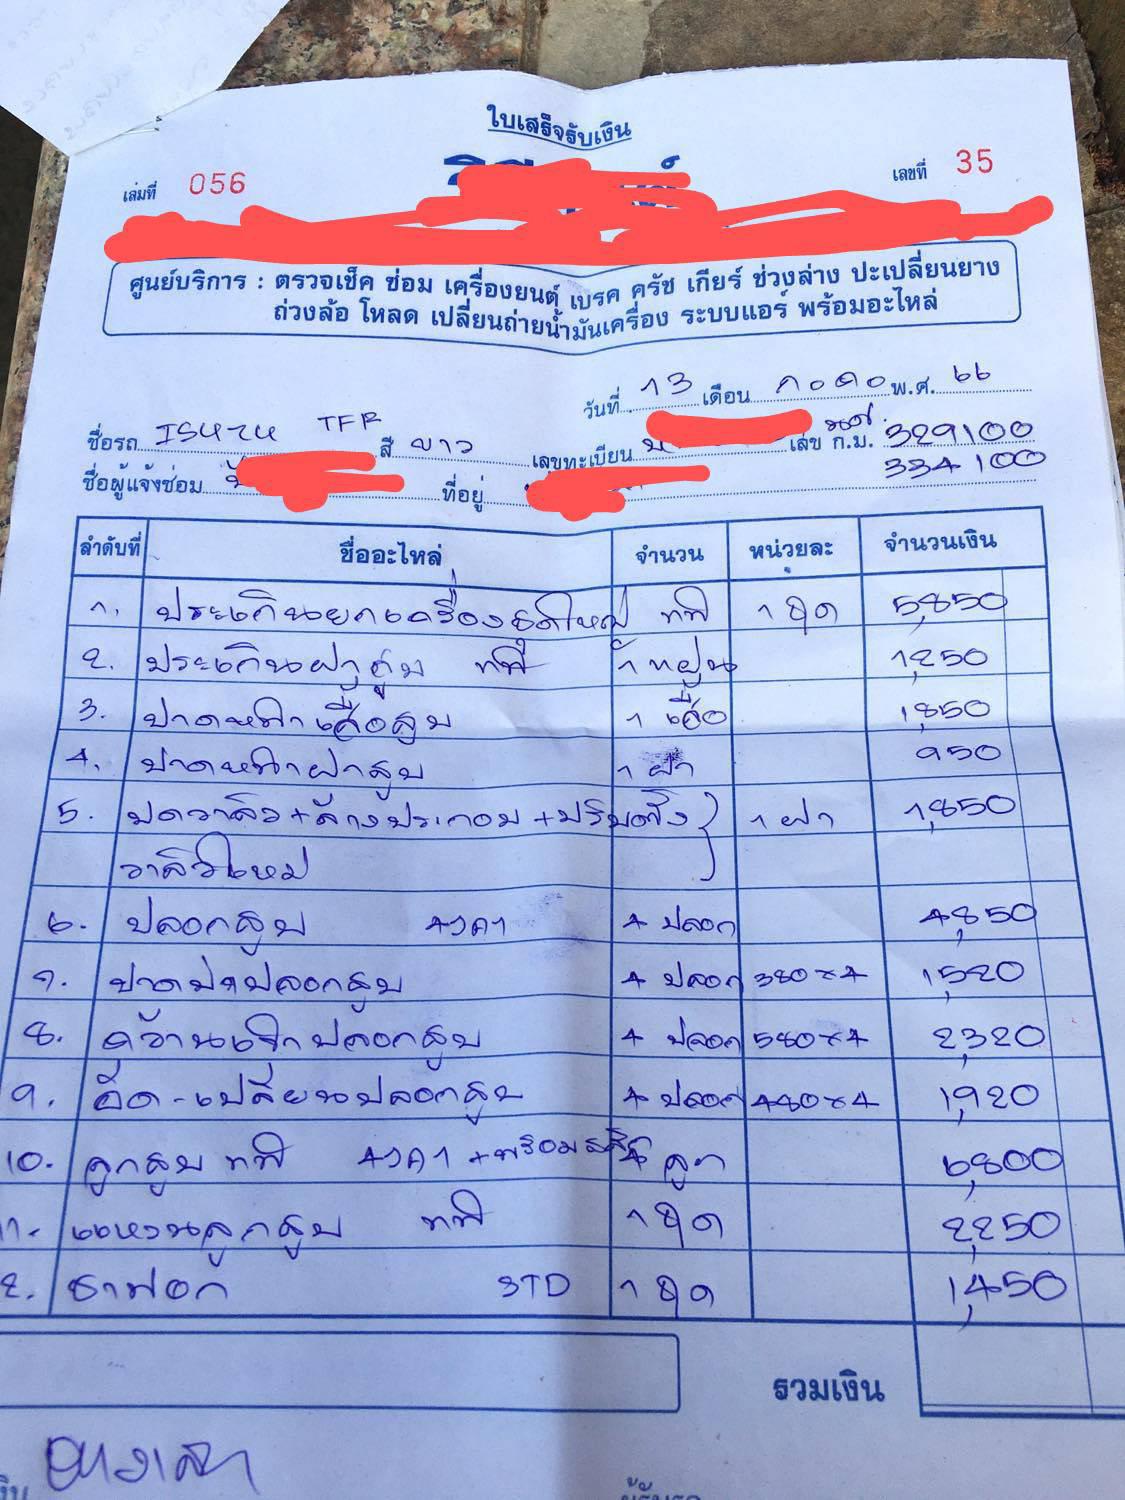 ใบเสร็จรับเงิน
เล่มที่ 056 เลขที่ 35
ศูนย์บริการ : ตรวจเช็ค ซ่อม เครื่องยนต์ เบรค ครัช เกียร์ ช่วงล่าง ปะเปลี่ยนยาง
ถ่วงล้อ โหลด เปลี่ยนถ่ายน้ำมันเครื่อง ระบบแอร์ พร้อมอะไหล่
วันที่ 13 เดือน ก.ค. พ.ศ. ๖๖
ชื่อรถ ISUZU TFR สี ขาว เลขทะเบียน เลข ก.ม. 329100
ชื่อผู้แจ้งซ่อม ที่อยู่ 334100
ลำดับที่ ชื่ออะไหล่ จำนวน หน่วยละ จำนวนเงิน
1. ประเก็นยกเครื่องชุดใหญ่ แท้ 1 ชุด 5,850
2. ประเก็นฝาสูบ แท้ 1 แผ่น 1,250
3. ปาดหน้าเสื้อสูบ 1 เสื้อ 1,850
4. ปาดหน้าฝาสูบ 1 ฝา 950
5. บดวาล์ว+ล้างประกอบ+ปรับตั้ง 1 ฝา 1,850
วาล์วใหม่
6. ปลอกสูบ 4JA1 4 ปลอก 4,850
7. ปาดบ่าปลอกสูบ 4 ปลอก 380×4 1,520
8. คว้านเจียปลอกสูบ 4 ปลอก 580×4 2,320
9. อัด-เปลี่ยนปลอกสูบ 4 ปลอก 480×4 1,920
10. ลูกสูบ แท้ 4JA1 +พร้อมสลัก 4 ลูก 6,800
11. แหวนลูกสูบ แท้ 1 ชุด 2,250
2. ชาฟอก STD 1 ชุด 1,450
รวมเงิน